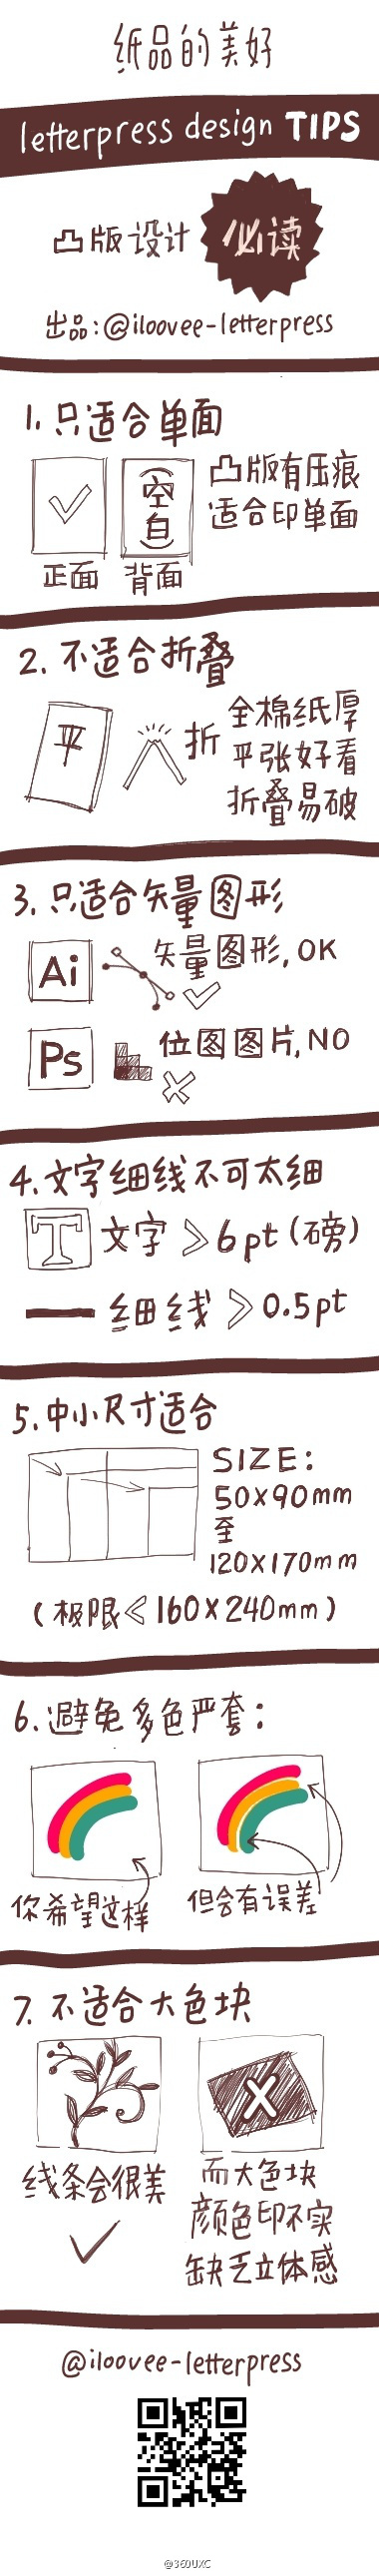 纸品的美好
letterpress design TIPS
凸版设计 必读
出品:@iloovee-letterpress
1. 只适合单面
(空白)
正面 背面
凸版有压痕
适合印单面
2. 不适合折叠
平
折
全棉纸厚
平张好看
折叠易破
3. 只适合矢量图形
Ai
矢量图形,OK
Ps
位图图片,NO
4.文字细线不可太细
T 文字 >6pt(磅)
细线 >0.5pt
5.中小尺寸适合
SIZE:
50X90mm
至
120X170mm
(极限<160X240mm)
6.避免多色严套:
你希望这样
但会有误差
7. 不适合大色块
线条会很美
X
而大色块
颜色印不实
缺乏立体感
@iloovee-letterpress
@360UXC